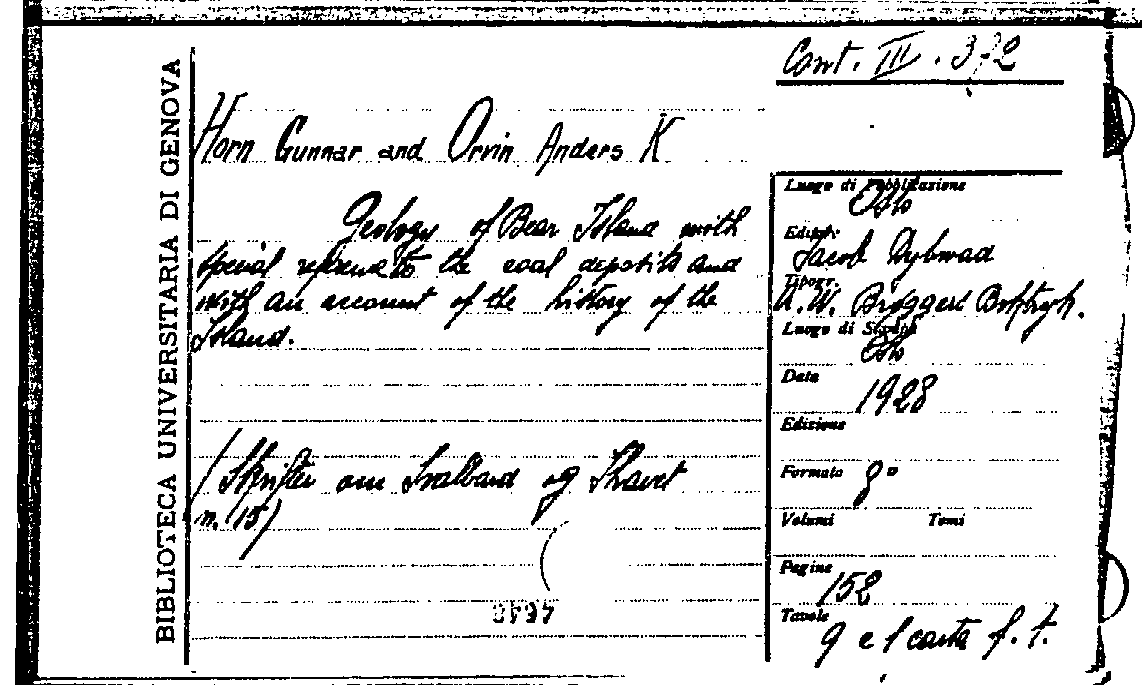 BIBLIOTECA UNIVERSITARIA DI GENOVA
Cont. III. 372
Horn Gunnar and Orvin Anders K
Geology of Bear Island with
special reference to the coal deposits and
with an account of the history of the
Island.
(Skrifter om Svalbard og Ishavet
n. 15)
Luogo di Pubblicazione
Oslo
Editore
Jacob Dybwad
Tipogr.
A. W. Brøggers Boktryk.
Luogo di Stampa
Oslo
Data
1928
Edizione
Formato 8°
Volumi Tomi
Pagine
152
Tavole
9 e 1 carta f. t.